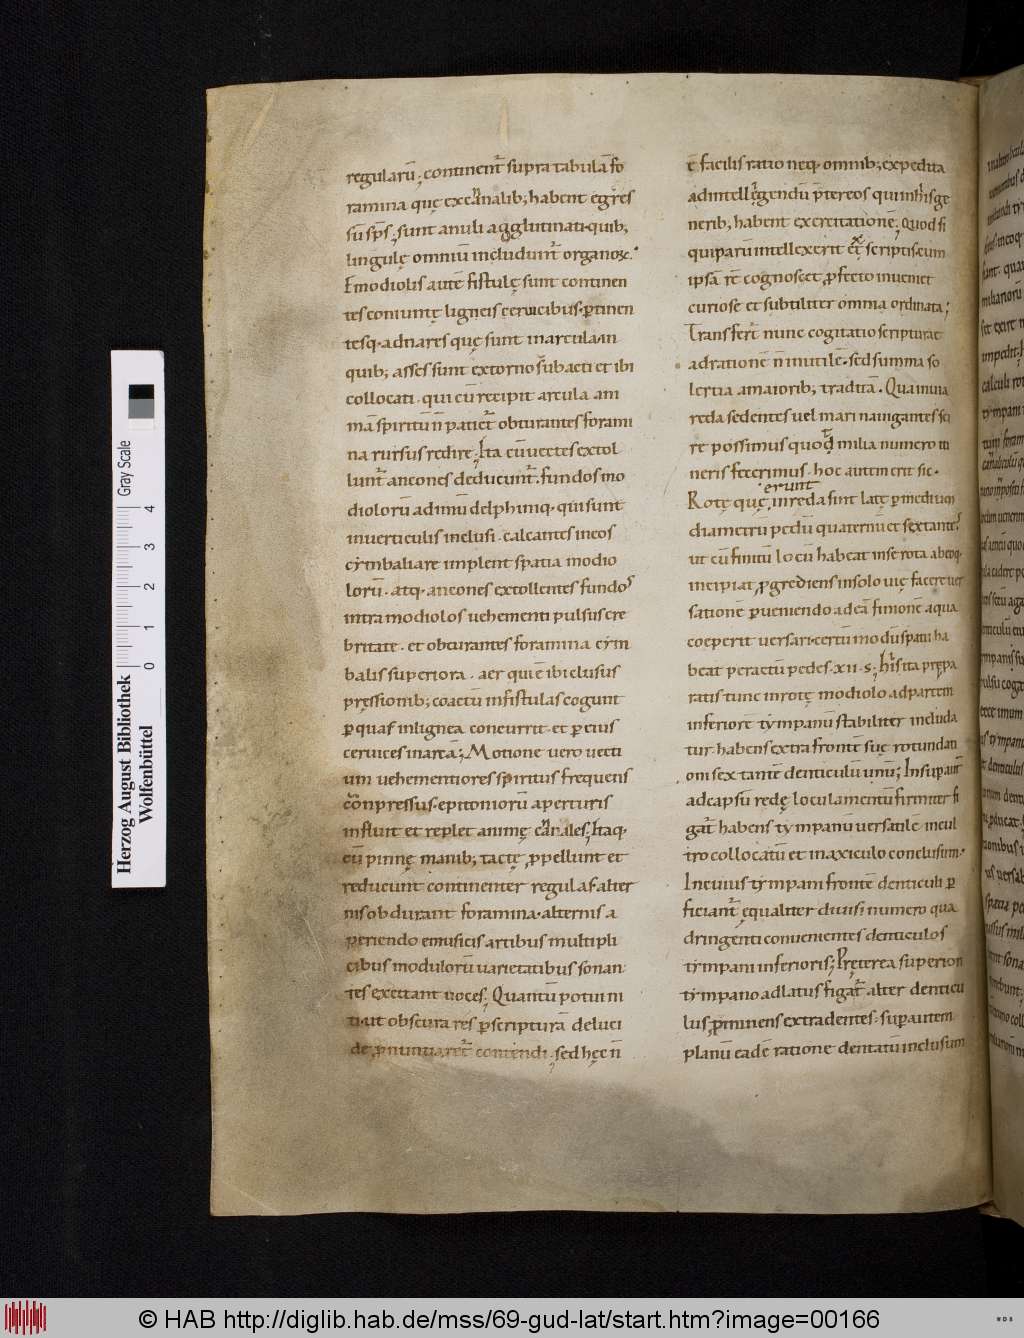 regularū; continent̄ supra tabulā fo
ramina quę ex canalib; habent egres
sū sp̄s; sunt anuli agglutinati quib;
lingulę omniū includunt̄ organoꝝ.
E modiolis autē fistulę sunt continen
tes coniunctę ligneis ceruicibus ꝑtinen
tesq· ad nares quę sunt in arcula in
quib; asses sunt ex torno subacti et ibi
collocati · qui cū recipit arcula ani
mā spiritū n̄ patient̄ obturantes forami
na rursus redire; Ita cū uectes extol
lunt̄ ancones deducunt̄ fundos mo
diolorū ad imū delphiniq· qui sunt
in uerticulis inclusi · calcantes in eos
cymbali aere implent spatia modio
lorū · atq· ancones extollentes fundos
intra modiolos uehementi pulsus cre
britate · et obturantes foramina cym
balis superiora · aer qui ē ibi clusus
pressionib; coactū in fistulas cogunt
ꝑ quas in lignea concurrit et ꝑ eius
ceruices in arcā; Motione uero uecti
um uehementiores spiritus frequens
conpressus epitoniorū aperturis
influit et replet animę canales; Itaq·
cū pinnę manib; tactę ꝓpellunt et
reducunt continenter regulas alter
nis obdurant foramina alternis a
periendo e musicis artibus multipli
cibus modulorū uarietatibus sonan
tes excitant uoces; Quantū potui ni
ti ut obscura res ꝑ scripturā deluci
de ꝓnuntiaret̄ contendi · sed hęc n̄
ē facilis ratio neq· omnib; expedita
ad intellegendū p̄ter eos qui in his ge
nerib; habent exercitationē; Quod si
qui parū intellexerit ex scriptis cum
ipsā rē cognoscet ꝓfecto inueniet
curiose et subtiliter omnia ordinata;
Transfert̄ nunc cogitatio scripturae
ad rationē n̄ inutilē · sed summa so
lertia a maiorib; traditā · Qua in uia
reda sedentes uel mari nauigantes sci
re possimus quod milia numero iti
neris fecerimus · hoc autem erit sic ·
erunt
Rotę quę in reda sint latę ꝑ medium
diametrū pedū quaternū et sextantes
ut cū finitū locū habeat in se rota ab eoq·
incipiat ꝓgrediens in solo uię facere uer
sationē ꝑueniendo ad eā finionē a qua
coeperit uersari certū modū spatii ha
beat peractū pedes · xii · s; His ita prępa
ratis tunc in rotę modiolo ad partem
inferiorē tympanū stabiliter includa
tur habens extra frontē suę rotundati
onis extantē denticulū unū; Insup aut̄
ad capsū redę loculamentū firmiter fi
gat̄ habens tympanū uersatilē in cul
tro collocatū et in axiculo conclusum ·
In cuius tympani frontē denticuli ꝑ
ficiant̄ ęqualiter diuisi numero qua
dringenti conuenientes denticulos
tympani inferioris; Pręterea superiori
tympano ad latus figat̄ alter denticu
lus ꝓminens extra dentes · super autem
planū eadē ratione dentatū inclusum
Herzog August Bibliothek
Wolfenbüttel
Gray Scale
0 1 2 3 4
© HAB http://diglib.hab.de/mss/69-gud-lat/start.htm?image=00166